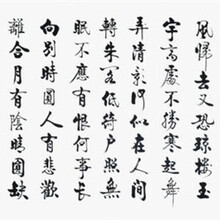 風歸去又恐瓊樓玉
宇高處不勝寒起舞
弄清影何似在人間
轉朱閣低綺戶照無
眠不應有恨何事長
向別時圓人有悲歡
離合月有陰晴圓缺